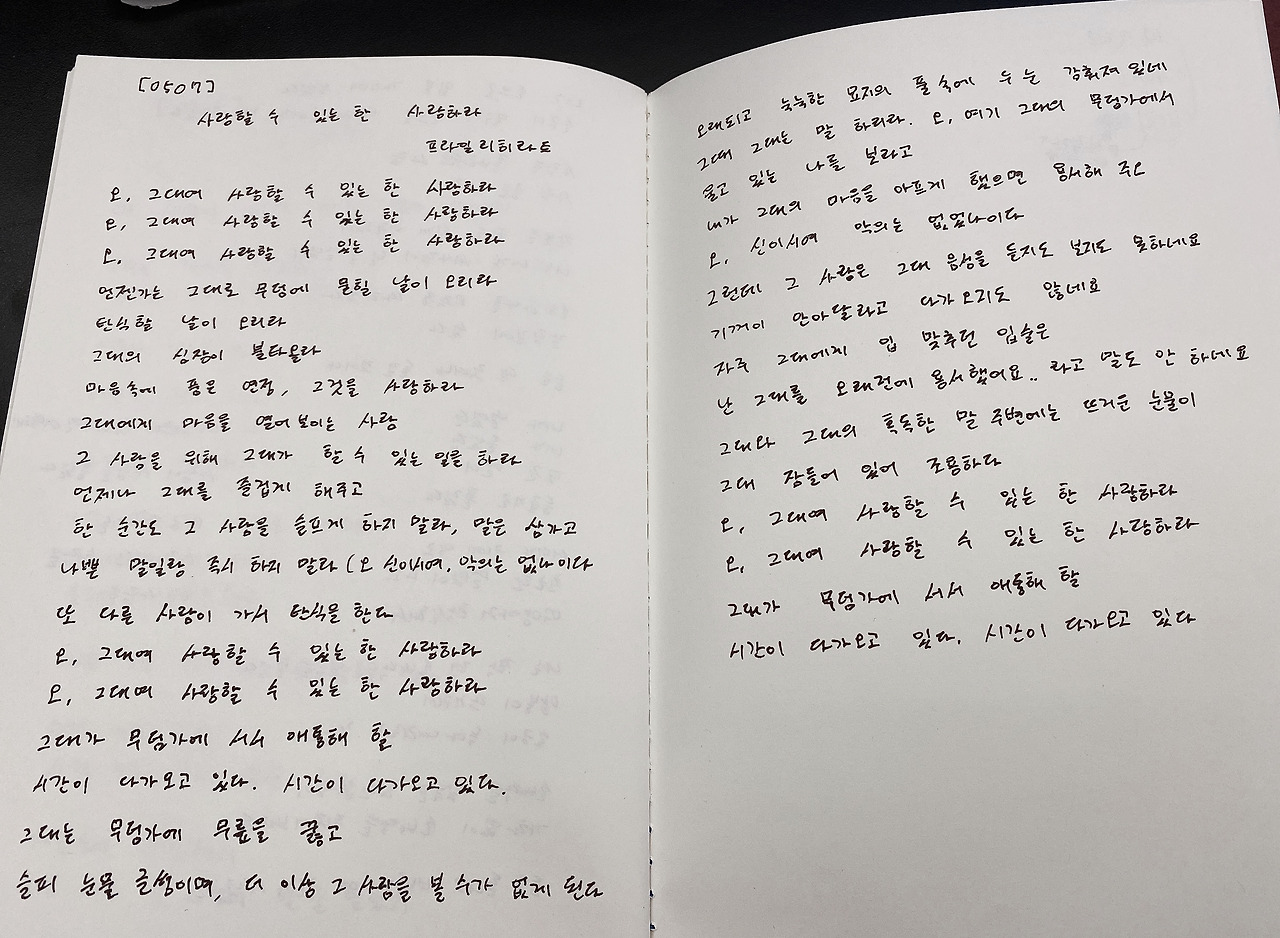 [0507]
사랑할 수 있는 한 사랑하라
프라일리히라트
오, 그대여 사랑할 수 있는 한 사랑하라
오, 그대여 사랑할 수 있는 한 사랑하라
오, 그대여 사랑할 수 있는 한 사랑하라
언젠가는 그대로 무덤에 묻힐 날이 오리라
탄식할 날이 오리라
그대의 심장이 불타올라
마음속에 품은 연정, 그것을 사랑하라
그대에게 마음을 열어 보이는 사랑
그 사람을 위해 그대가 할 수 있는 일을 하라
언제나 그대를 즐겁게 해주고
한 순간도 그 사람을 슬프게 하지 말라, 말은 삼가고
나쁜 말일랑 즉시 하지 말라 (오 신이시여, 악의는 없나이다
또 다른 사랑이 가서 탄식을 한다
오, 그대여 사랑할 수 있는 한 사랑하라
오, 그대여 사랑할 수 있는 한 사랑하라
그대가 무덤가에 서서 애통해 할
시간이 다가오고 있다. 시간이 다가오고 있다.
그대는 무덤가에 무릎을 꿇고
슬피 눈물 글썽이며, 더 이상 그 사람을 볼 수가 없게 된다
오래되고 눅눅한 묘지의 풀 속에 두 눈 감춰져 있네
그때 그대는 말 하리라. 오, 여기 그대의 무덤가에서
울고 있는 나를 보라고
내가 그대의 마음을 아프게 했으면 용서해 주오
오, 신이시여 악의는 없었나이다
그런데 그 사람은 그대 음성을 듣지도 보지도 못하네요
기꺼이 안아달라고 다가오지도 않네요
자주 그대에게 입 맞추던 입술은
난 그대를 오래전에 용서했어요.. 라고 말도 안 하네요
그대와 그대의 혹독한 말 주변에는 뜨거운 눈물이
그대 잠들어 있어 조용하다
오, 그대여 사랑할 수 있는 한 사랑하라
오, 그대여 사랑할 수 있는 한 사랑하라
그대가 무덤가에 서서 애통해 할
시간이 다가오고 있다. 시간이 다가오고 있다